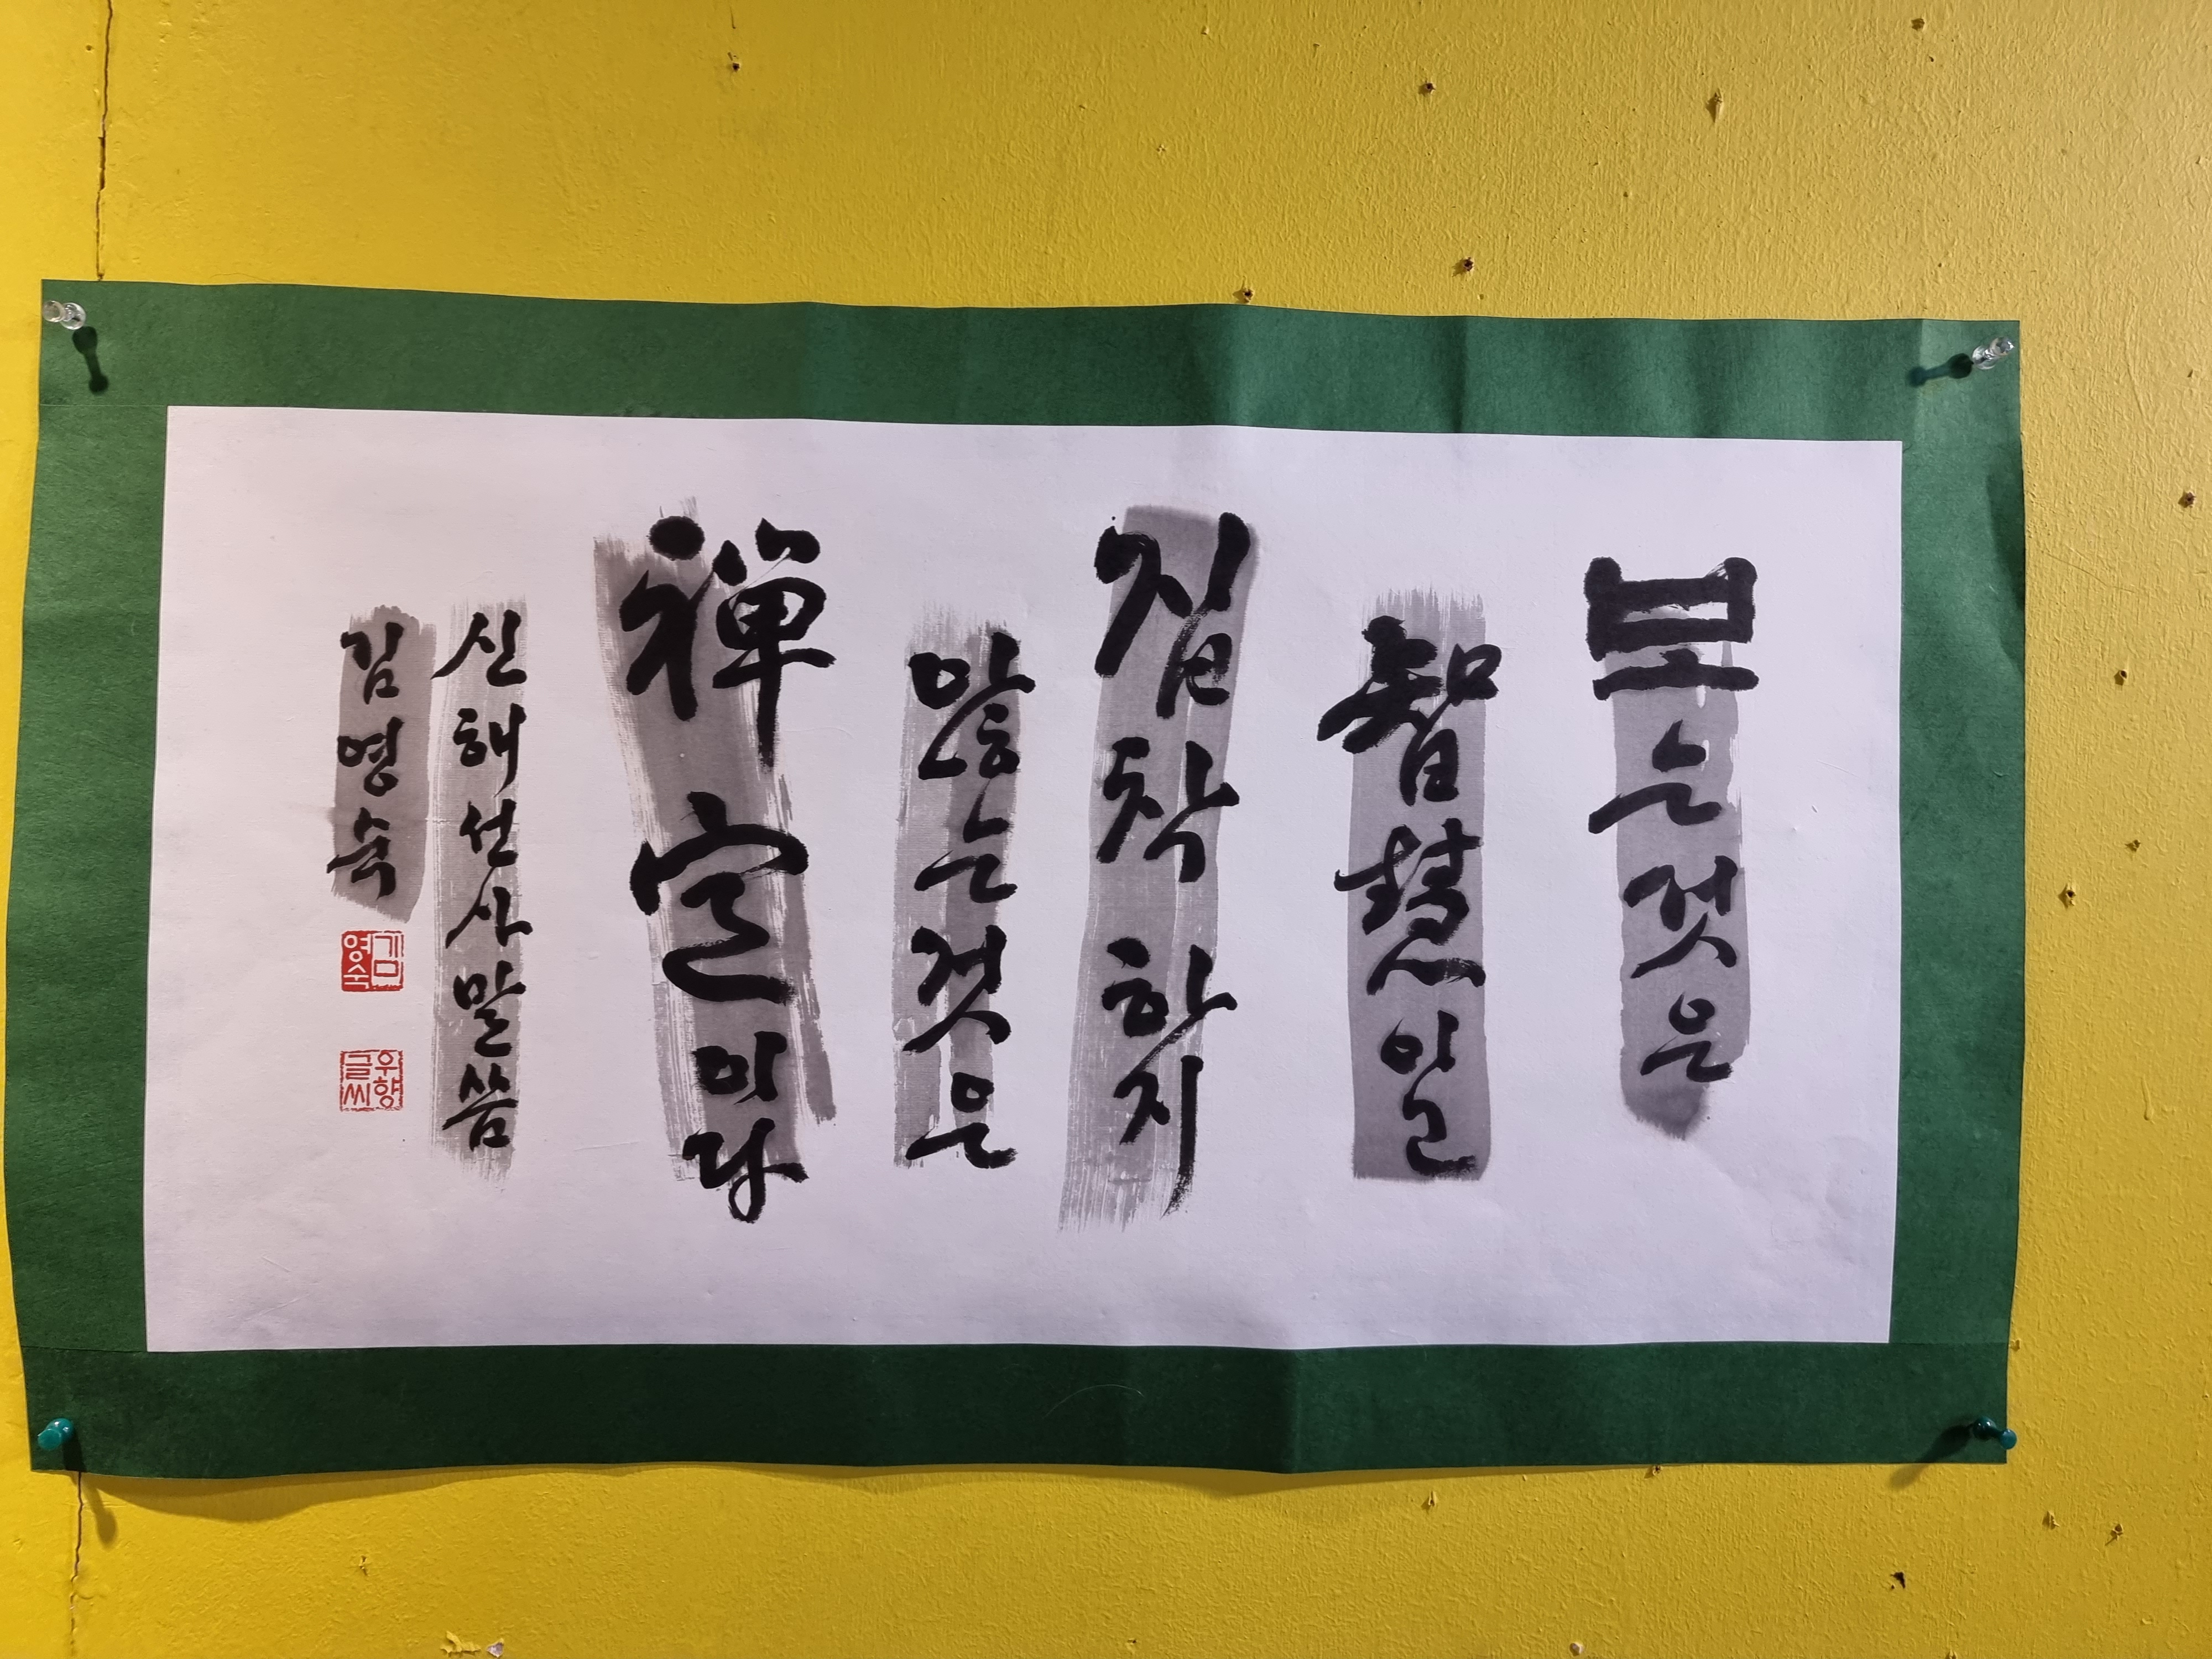 보는것은
智慧이고
집착하지
않는것은
禪定이다
신해선사말씀
김영숙
김영숙
우향글씨